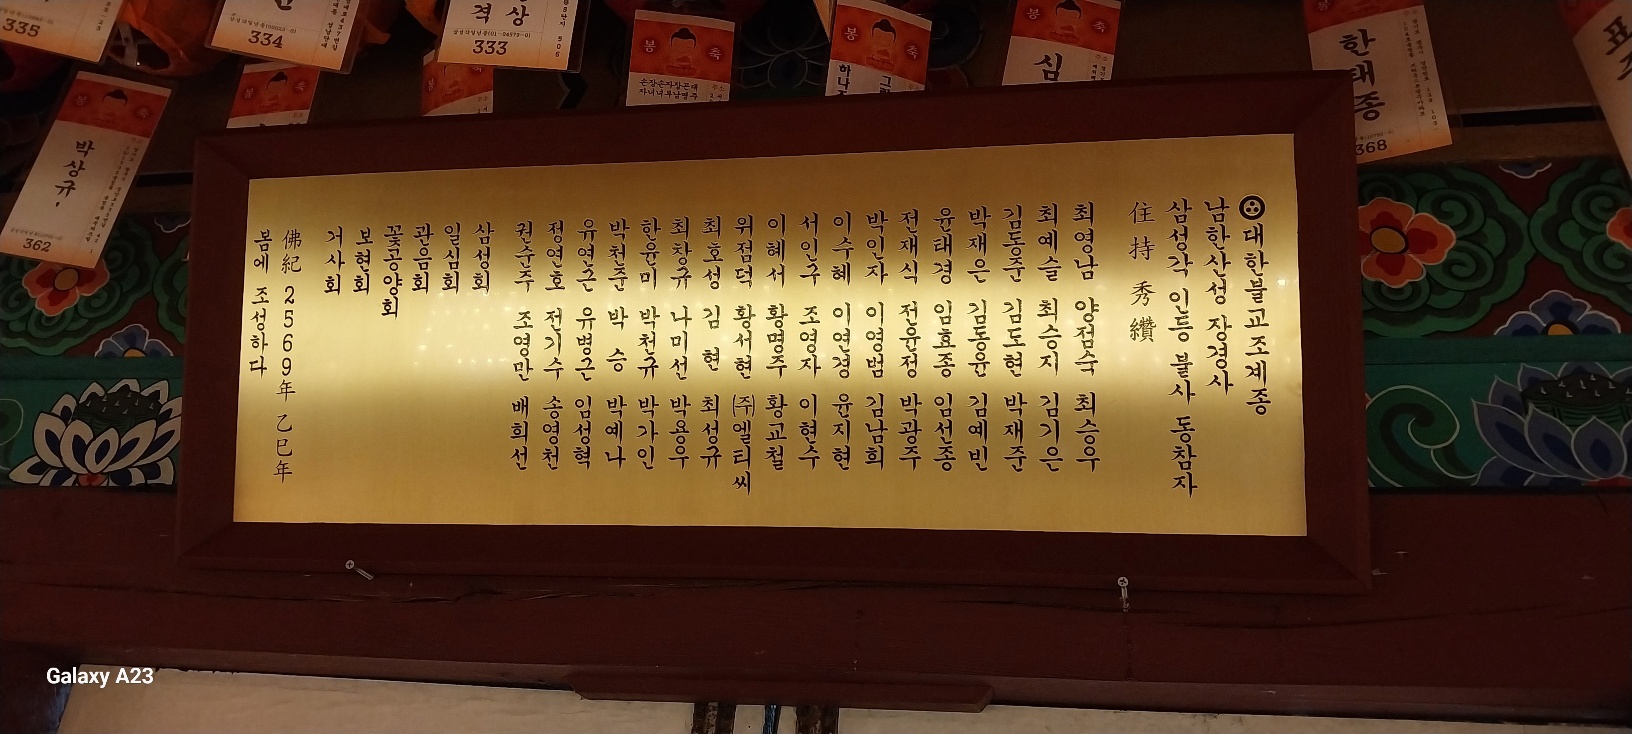 대한불교조계종
남한산성 장경사
삼성각 인등 불사 동참자
住持 秀纘
최영남 양점숙 최승우
최예슬 최승지 김기은
김동준 김도현 박재준
박재은 김동윤 김예빈
윤태경 임효종 임선종
전재식 전윤정 박광주
박인자 이영범 김남희
이수혜 이연경 윤지현
서인구 조영자 이현수
이혜서 황명주 황교철
위점덕 황서현 ㈜엘티씨
최호성 김현 최성규
최창규 나미선 박용우
한윤미 박천규 박가인
박천준 박승 박예나
유연근 유병근 임성혁
정연호 전기수 송영천
권순주 조영만 배희선
삼성회
일심회
관음회
꽃공양회
보현회
거사회
佛紀 2569年 乙巳年
봄에 조성하다
335
334
격 상
333
봉 축
손장손자장픈대
자녀녀부남명주
봉 축
하나
그
축
심
한태종
368
봉 축
박상규
362
Galaxy A23